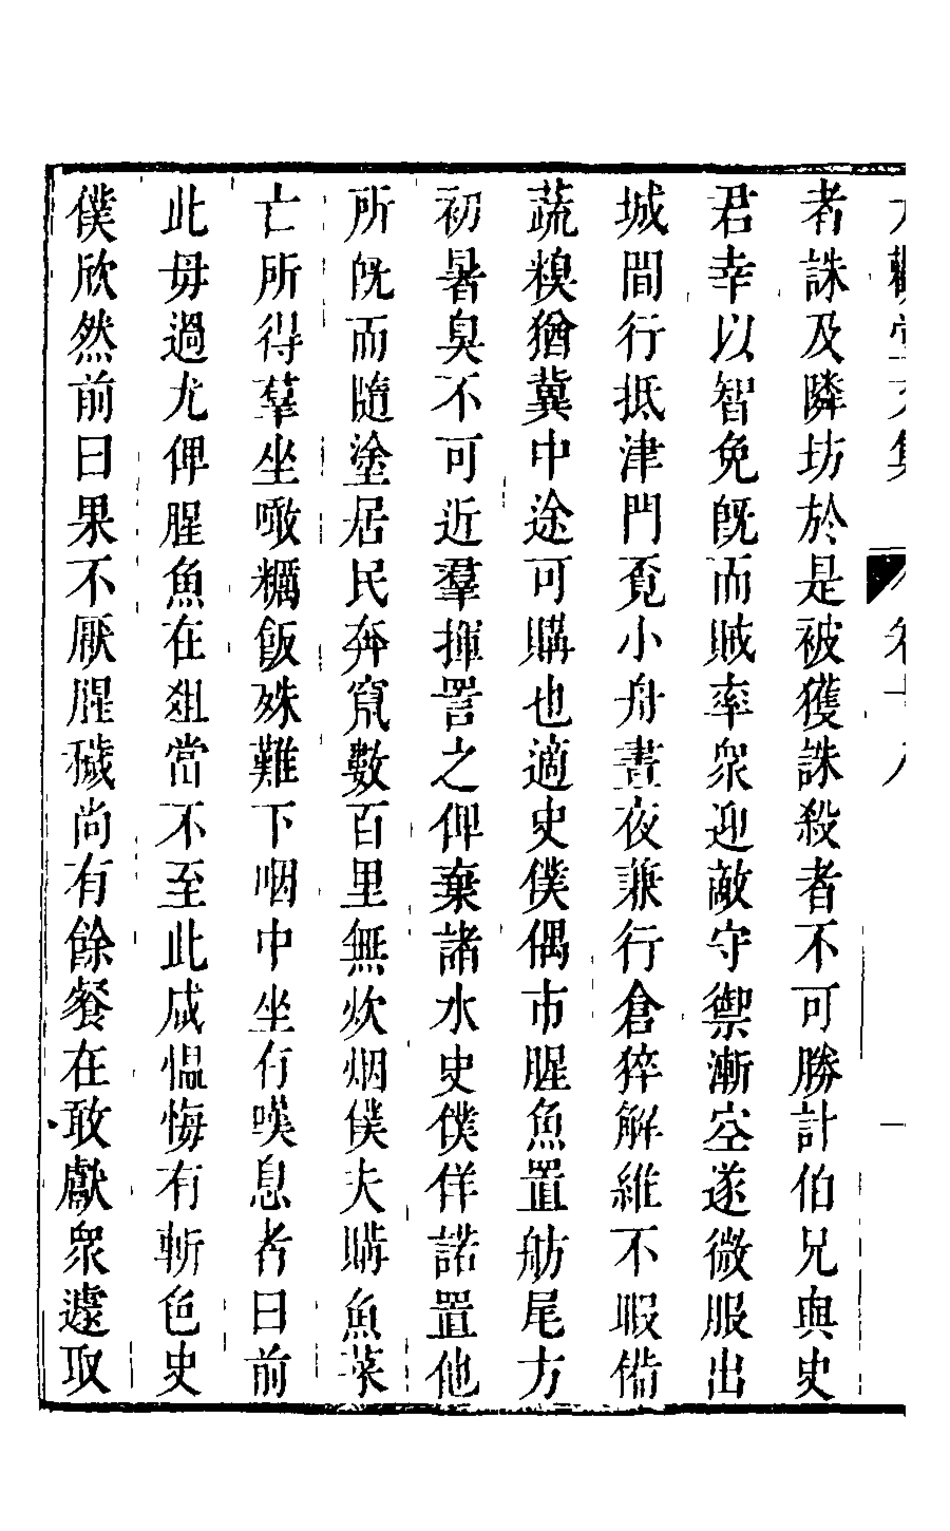 者誅及隣坊於是被獲誅殺者不可勝計伯兄與史
君幸以智免旣而賊率衆迎敵守禦漸空遂微服出
城間行抵津門覔小舟晝夜兼行倉猝解維不暇備
蔬糗猶冀中途可購也適史僕偶市腥魚置舫尾方
初暑臭不可近羣揮詈之俾棄諸水史僕佯諾置他
所旣而隨塗居民奔竄數百里無炊烟僕夫購魚菜
亡所得羣坐噉糲飯殊難下咽中坐有嘆息者曰前
此毋過尤俾腥魚在俎當不至此咸慍悔有慚色史
僕欣然前曰果不厭腥穢尚有餘餐在敢獻衆遽取